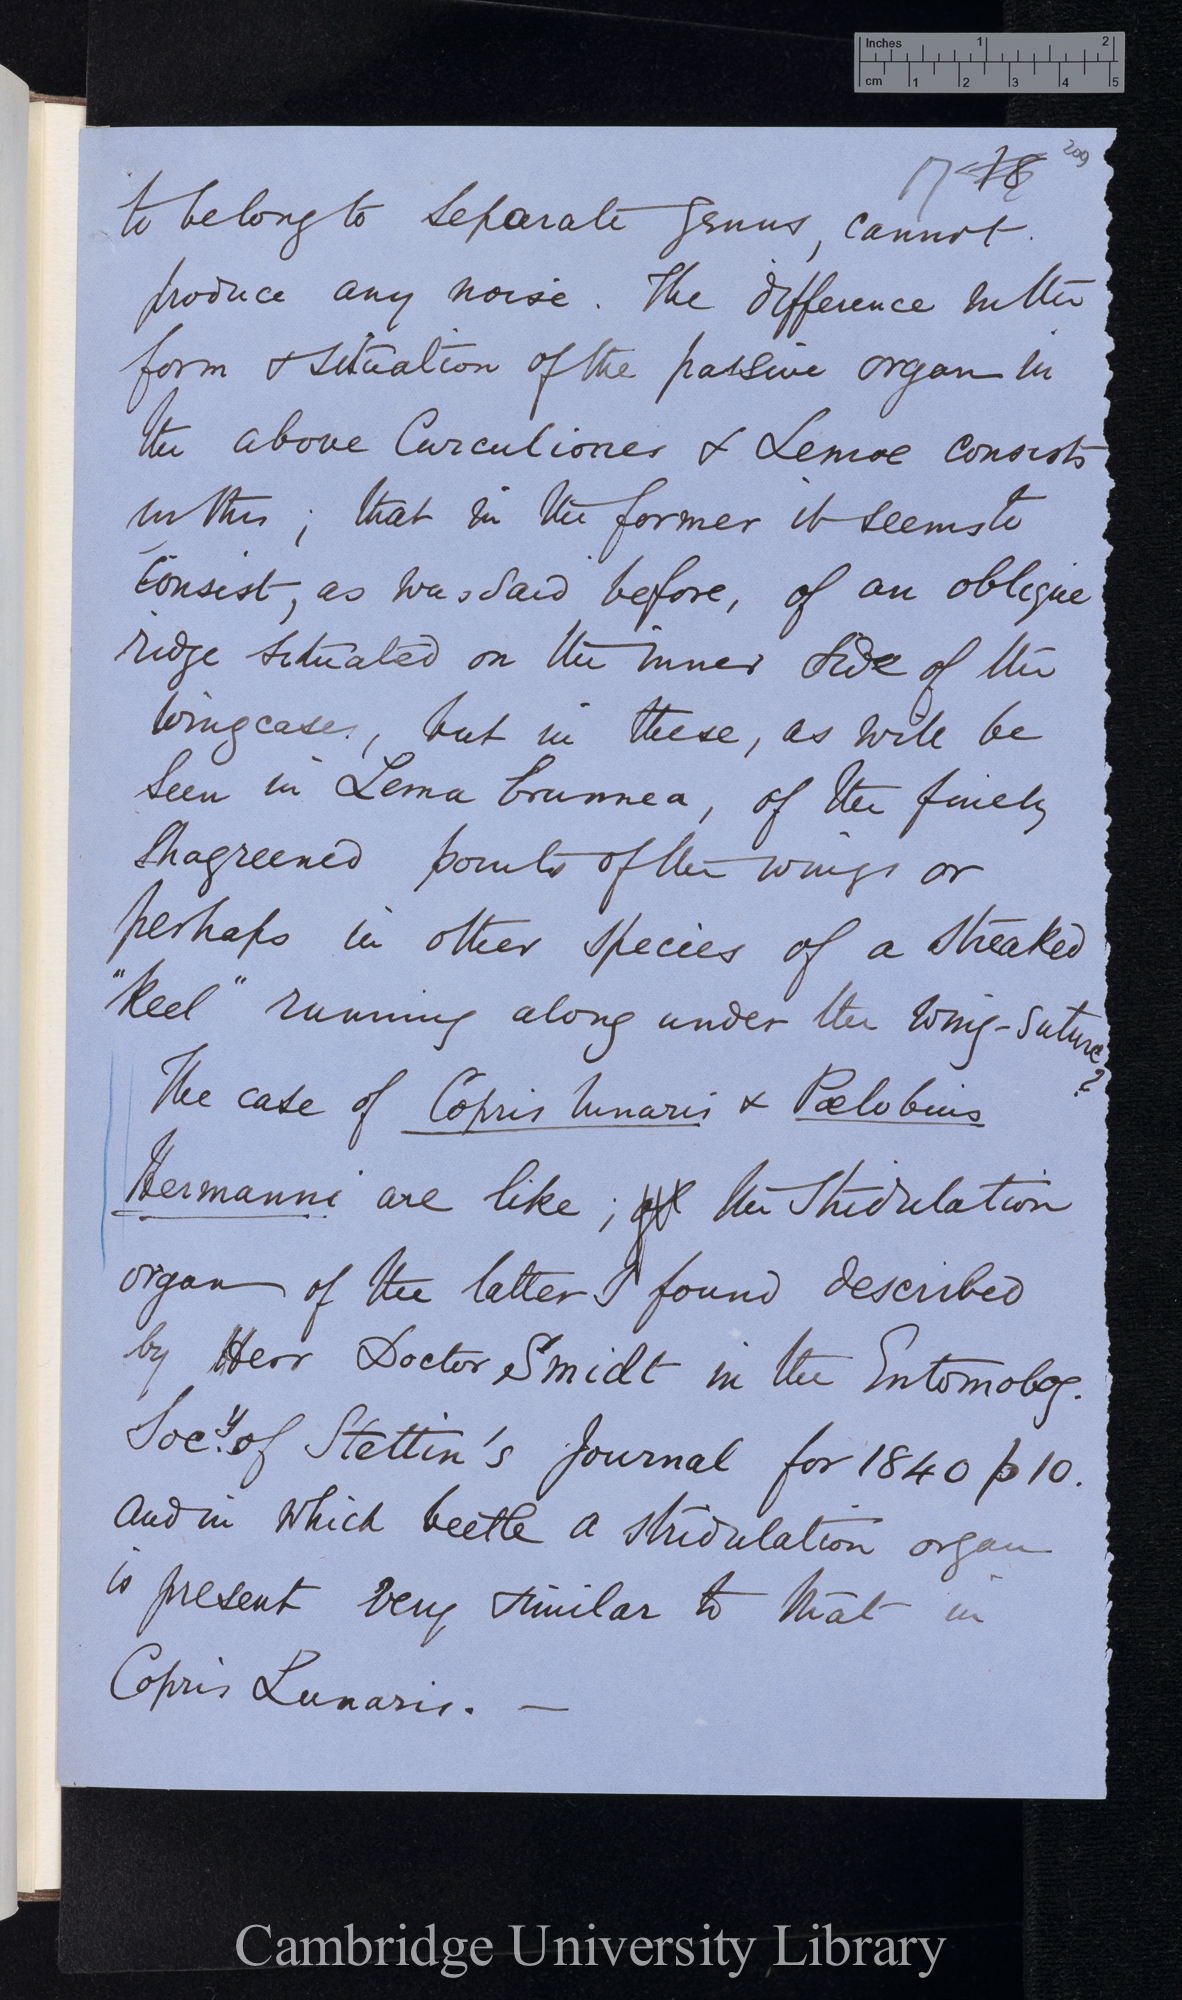 Inches 1 2
cm 1 2 3 4 5
209
17 78
to belong to separate genus, cannot
produce any noise. The difference in the
form & situation of the passive organ in
the above Curculiones & Lemae consists
in this; that in the former it seems to
consist, as was said before, of an oblique
ridge situated on the inner side of the
wingcases, but in these, as will be
seen in Lema brunnea, of the finely
shagreened points of the wings or
perhaps in other species of a streaked
"keel" running along under the wing-suture
?
The case of Copris lunaris & Pælobius
Hermanni are like; the stridulation
organ of the latter I found described
by Herr Doctor Smidt in the Entomolog.
Socy. of Stettin's Journal for 1840 p 10.
and in which beetle a stridulation organ
is present very similar to that in
Copris Lunaris. —
Cambridge University Library